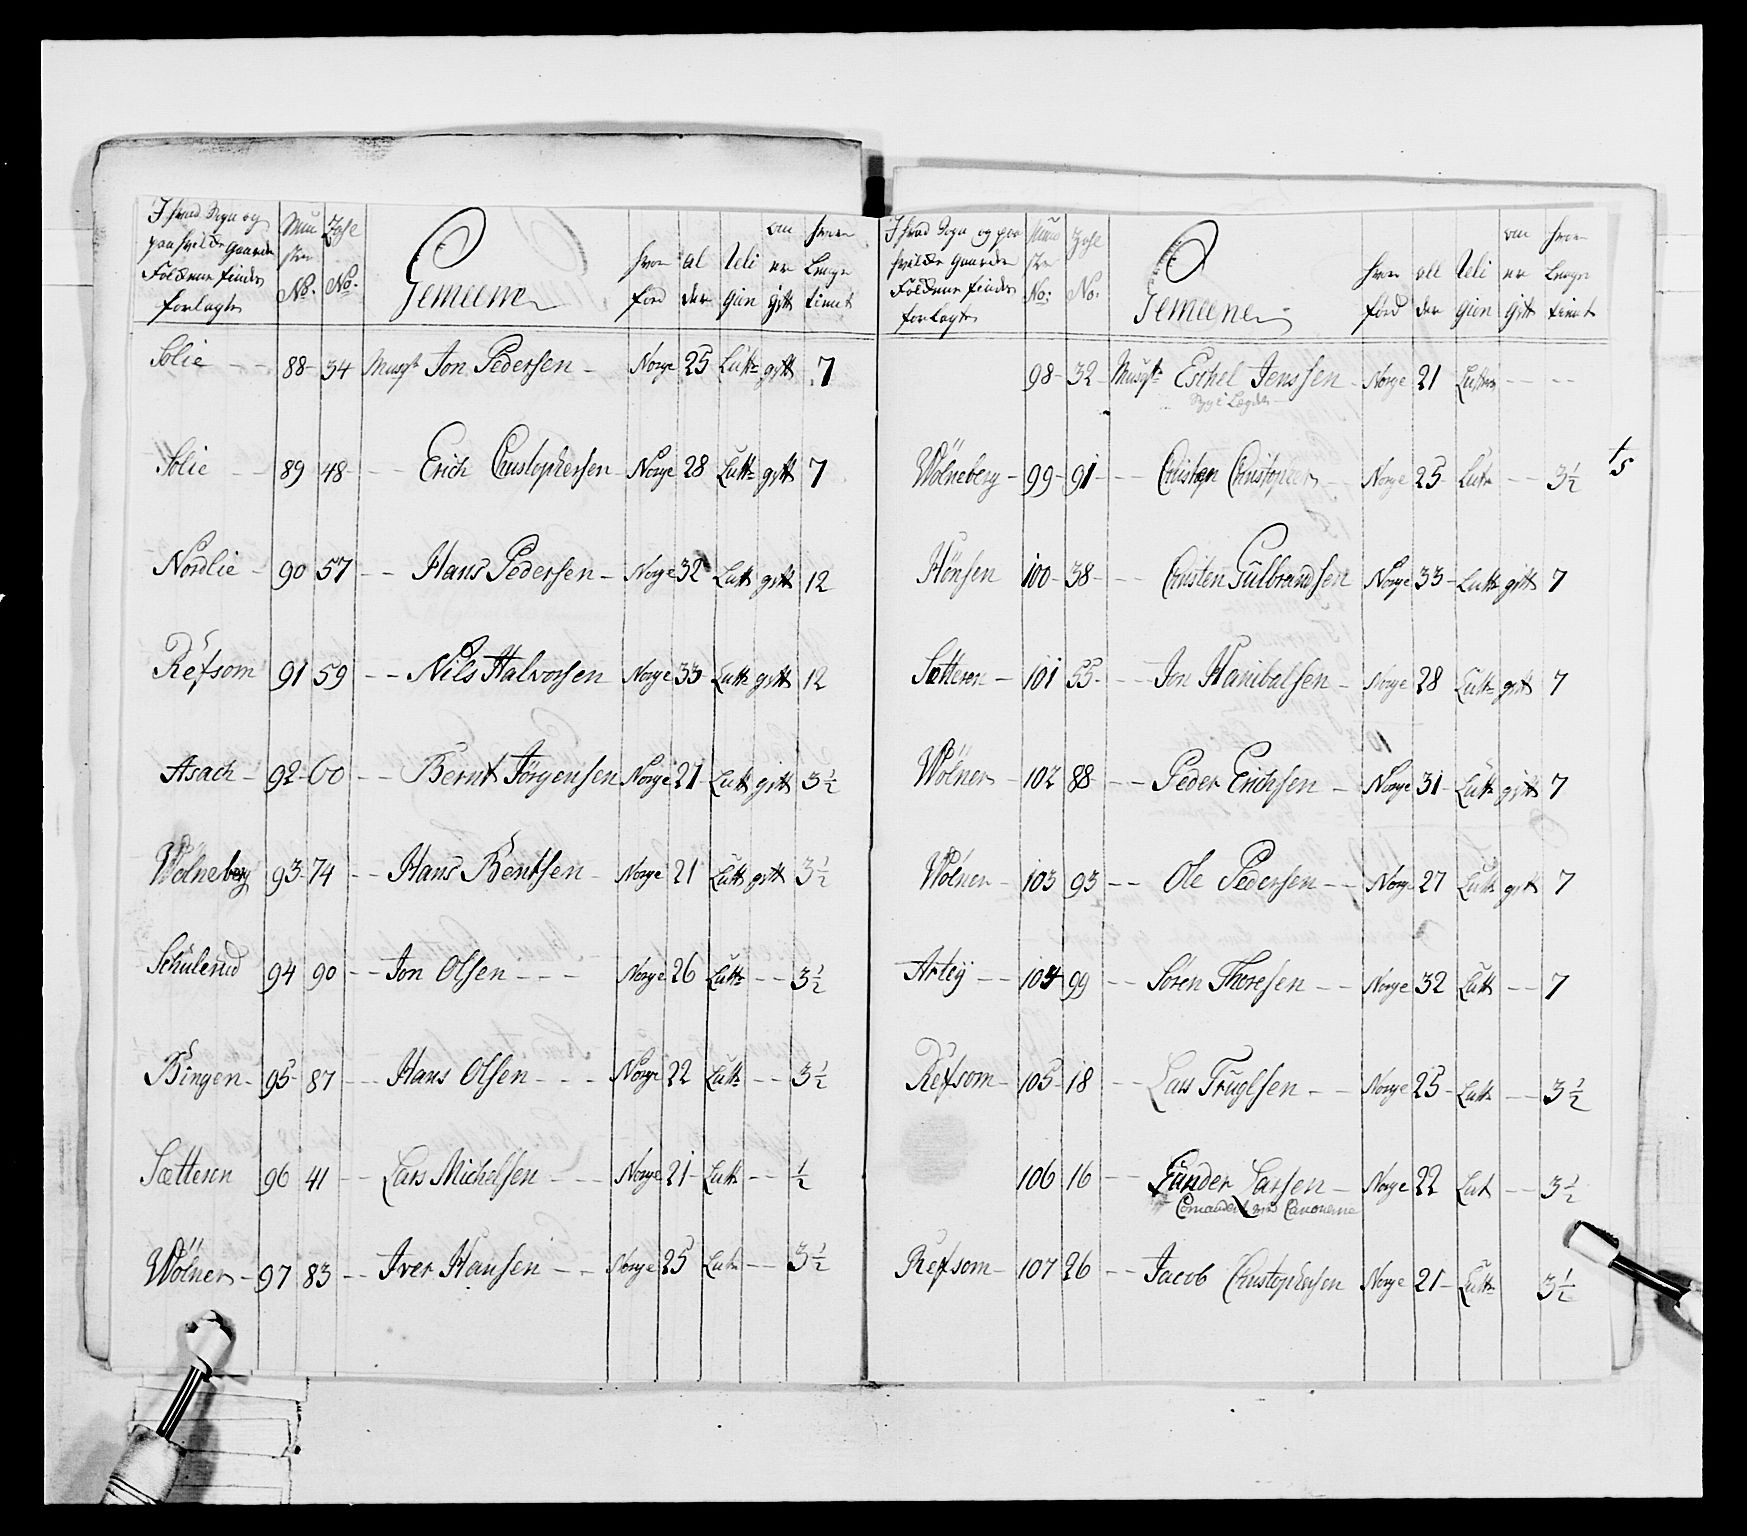 I hvad Sogn og paa hvilke Gaarde Folckene findes forlagte | Mun ster No. | Zahl No. | Gemeene | hvor fød | al der | Reli gion | om er gift | hvor Lenge tient
Solie - - 88 - 34 Musqtr Jon Pedersen - Norge 25 Luttr gift 7
Solie - - 89 48 - - - Erich Christophersen Norge 28 Luttr gift 7
Nordlie - 90 57 - - Hans Pedersen - Norge 32 Lutt gift 12
Refsom 91 59 - - Nils Halvorsen Norge 33 Luttr gift 12
Asach - 92 - 60 - - Bernt Jørgensen Norge 21 - Lutt gift 3 1/2
Wölneberg 93 - 74 - - Hans Bentsen - Norge 21 Lutt gift 3 1/2
Schulerud 94 90 - - Jon Olsen - - - Norge 26 Luttr - - 3 1/2
Bingen - 95 - 87 - - Hans Olsen - - - Norge 22 Luttr - - 3 1/2
Sætteren 96 41 - - Lars Michelsen - - - Norge 21 - Luttr - - 1/2
Wölner - 97 83 - - Iver Hansen - - Norge 25 Luttr - - 3 1/2
I hvad Sogn og paa hvilke Gaarde Folckene findes forlagte | Mun ster No: | Zahl No. | Gemeene | hvor fød | all der | Reli gion | om er Gift | hvor Lenge tient
98 - 32 - Musqtr Eschel Jenssen - Norge 21 Luttr - - - -
Syg i Lægdet
Wölneberg - 99 - 91 - - - Christen Christophers - Norge 25 - Luttr - - 3 1/2
t5
Hönsen 100 - 38 - - - Christen Gulbrandsen Norge 33 - Luttr gift 7
Sætteren - 101 55 - - - Jon Hanibalsen - Norge 28 Luttr gift 7
Wölner - 102 88 - - - Peder Erichsen - Norge 31 - Luttr gift 7
Wölner - 103 93 - - Ole Pedersen - - Norge 27 Luttr gift 7
Artey - - 104 99 - - Søren Thoresen - - Norge 32 Lutt - - 7
Refsom - 105 - 18 - - Lars Truglsen - - Norge 25 - Luttr - - 3 1/2
106 16 - - Gunder Larsen - Norge 22 Lut - - 3 1/2
Comandert ved Canonerne
Refsom - 107 26 - - Jacob Christophersen Norge 21 - Luttr 3 1/2